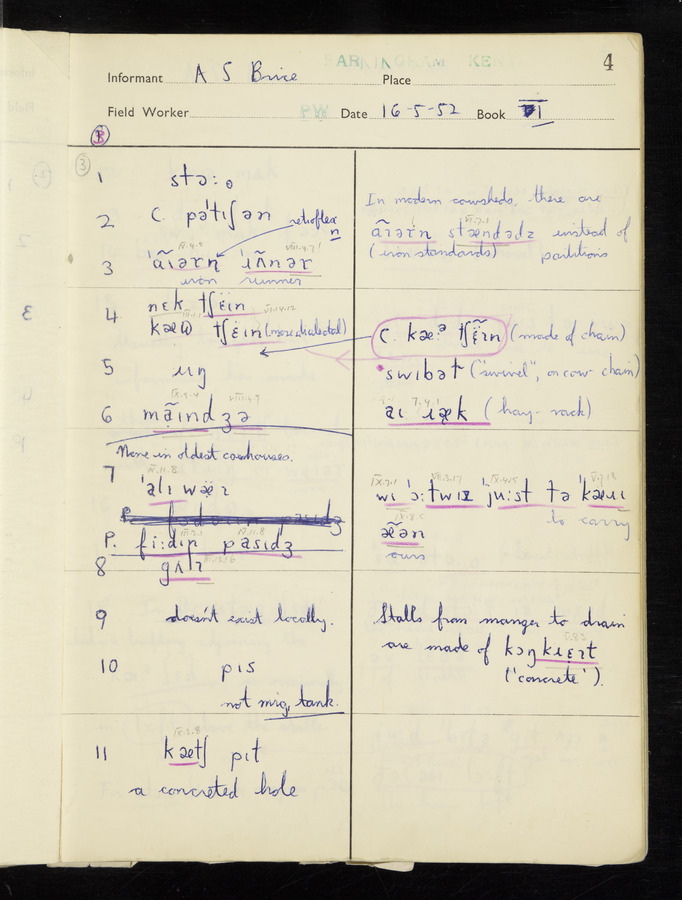 4
Informant A S Brice Place
Field Worker PW Date 16-5-52 Book VI
3
1 stə:
2 C. pə'tɪʃən retroflex n
3
iron runner
4 nɛk tʃɛ̈ɪn
tʃɛ̈ɪn (more dialectal)
5 ɹɪŋ
6 mãɪndʒə
None in oldest cowhouses.
7 'alɪ
P. fi:dɪn pasɪdʒ
8
9 doesn't exist locally.
10 pɪs
not mig, tank.
11 kætʃ pɪt
a concreted hole
In modern cowsheds, there are
stændədz instead of
(iron standards) partitions
C. (made of chain)
swɪbət ("swivel", on cow chain)
aɪ ɹæk (hay-rack)
wɪ 'ɔ:twɪz 'ju:st tə 'kæɹɪ
to carry
ours
Stalls from manger to drain
are made of
('concrete').